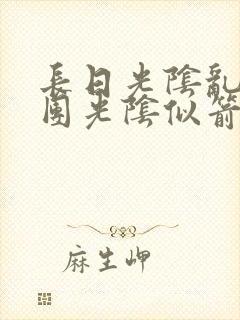 長日光陰亂
團光陰似箭
麻生岬